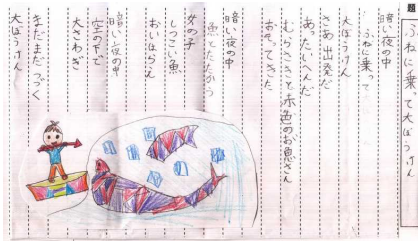 題
ふねに乗って大ぼうけん
暗い夜の中
ふねに乗って
大ぼうけん
さあ出発だ
あったいへんだ
むらさきと赤色のお魚さん
おそってきた
暗い夜の中
魚とたたかう
女の子
しつこい魚
おいはらん
暗い夜の中
空の下で
大さわぎ
まだまだつづく
大ぼうけん